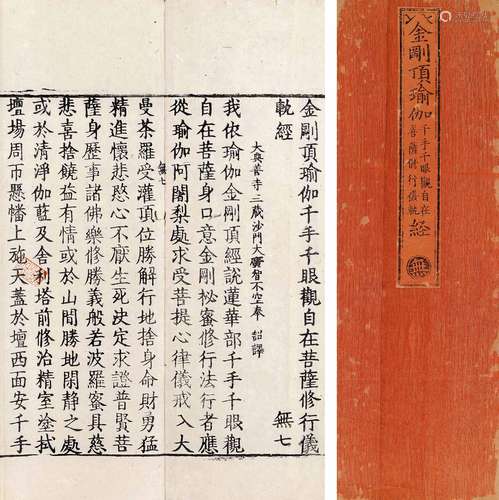 金剛頂瑜伽千手千眼觀自在菩薩修行儀
軌經 無七
大興善寺三藏沙門大廣智不空奉 詔譯
我依瑜伽金剛頂經說蓮華部千手千眼觀
自在菩薩身口意金剛祕蜜修行法行者應
從瑜伽阿闍梨處求受菩提心律儀戒入大
無七
曼荼羅受灌頂位勝解行地捨身命財勇猛
精進懷悲愍心不厭生死決定求證普賢菩
薩身歷事諸佛樂修勝義般若波羅蜜具慈
悲喜捨饒益有情或於山間勝地閑靜之處
或於清淨伽藍及舍利塔前修治精室塗拭
壇場周帀懸幡上施天蓋於壇西面安千手
金剛頂瑜伽千手千眼觀自在菩薩修行儀軌經